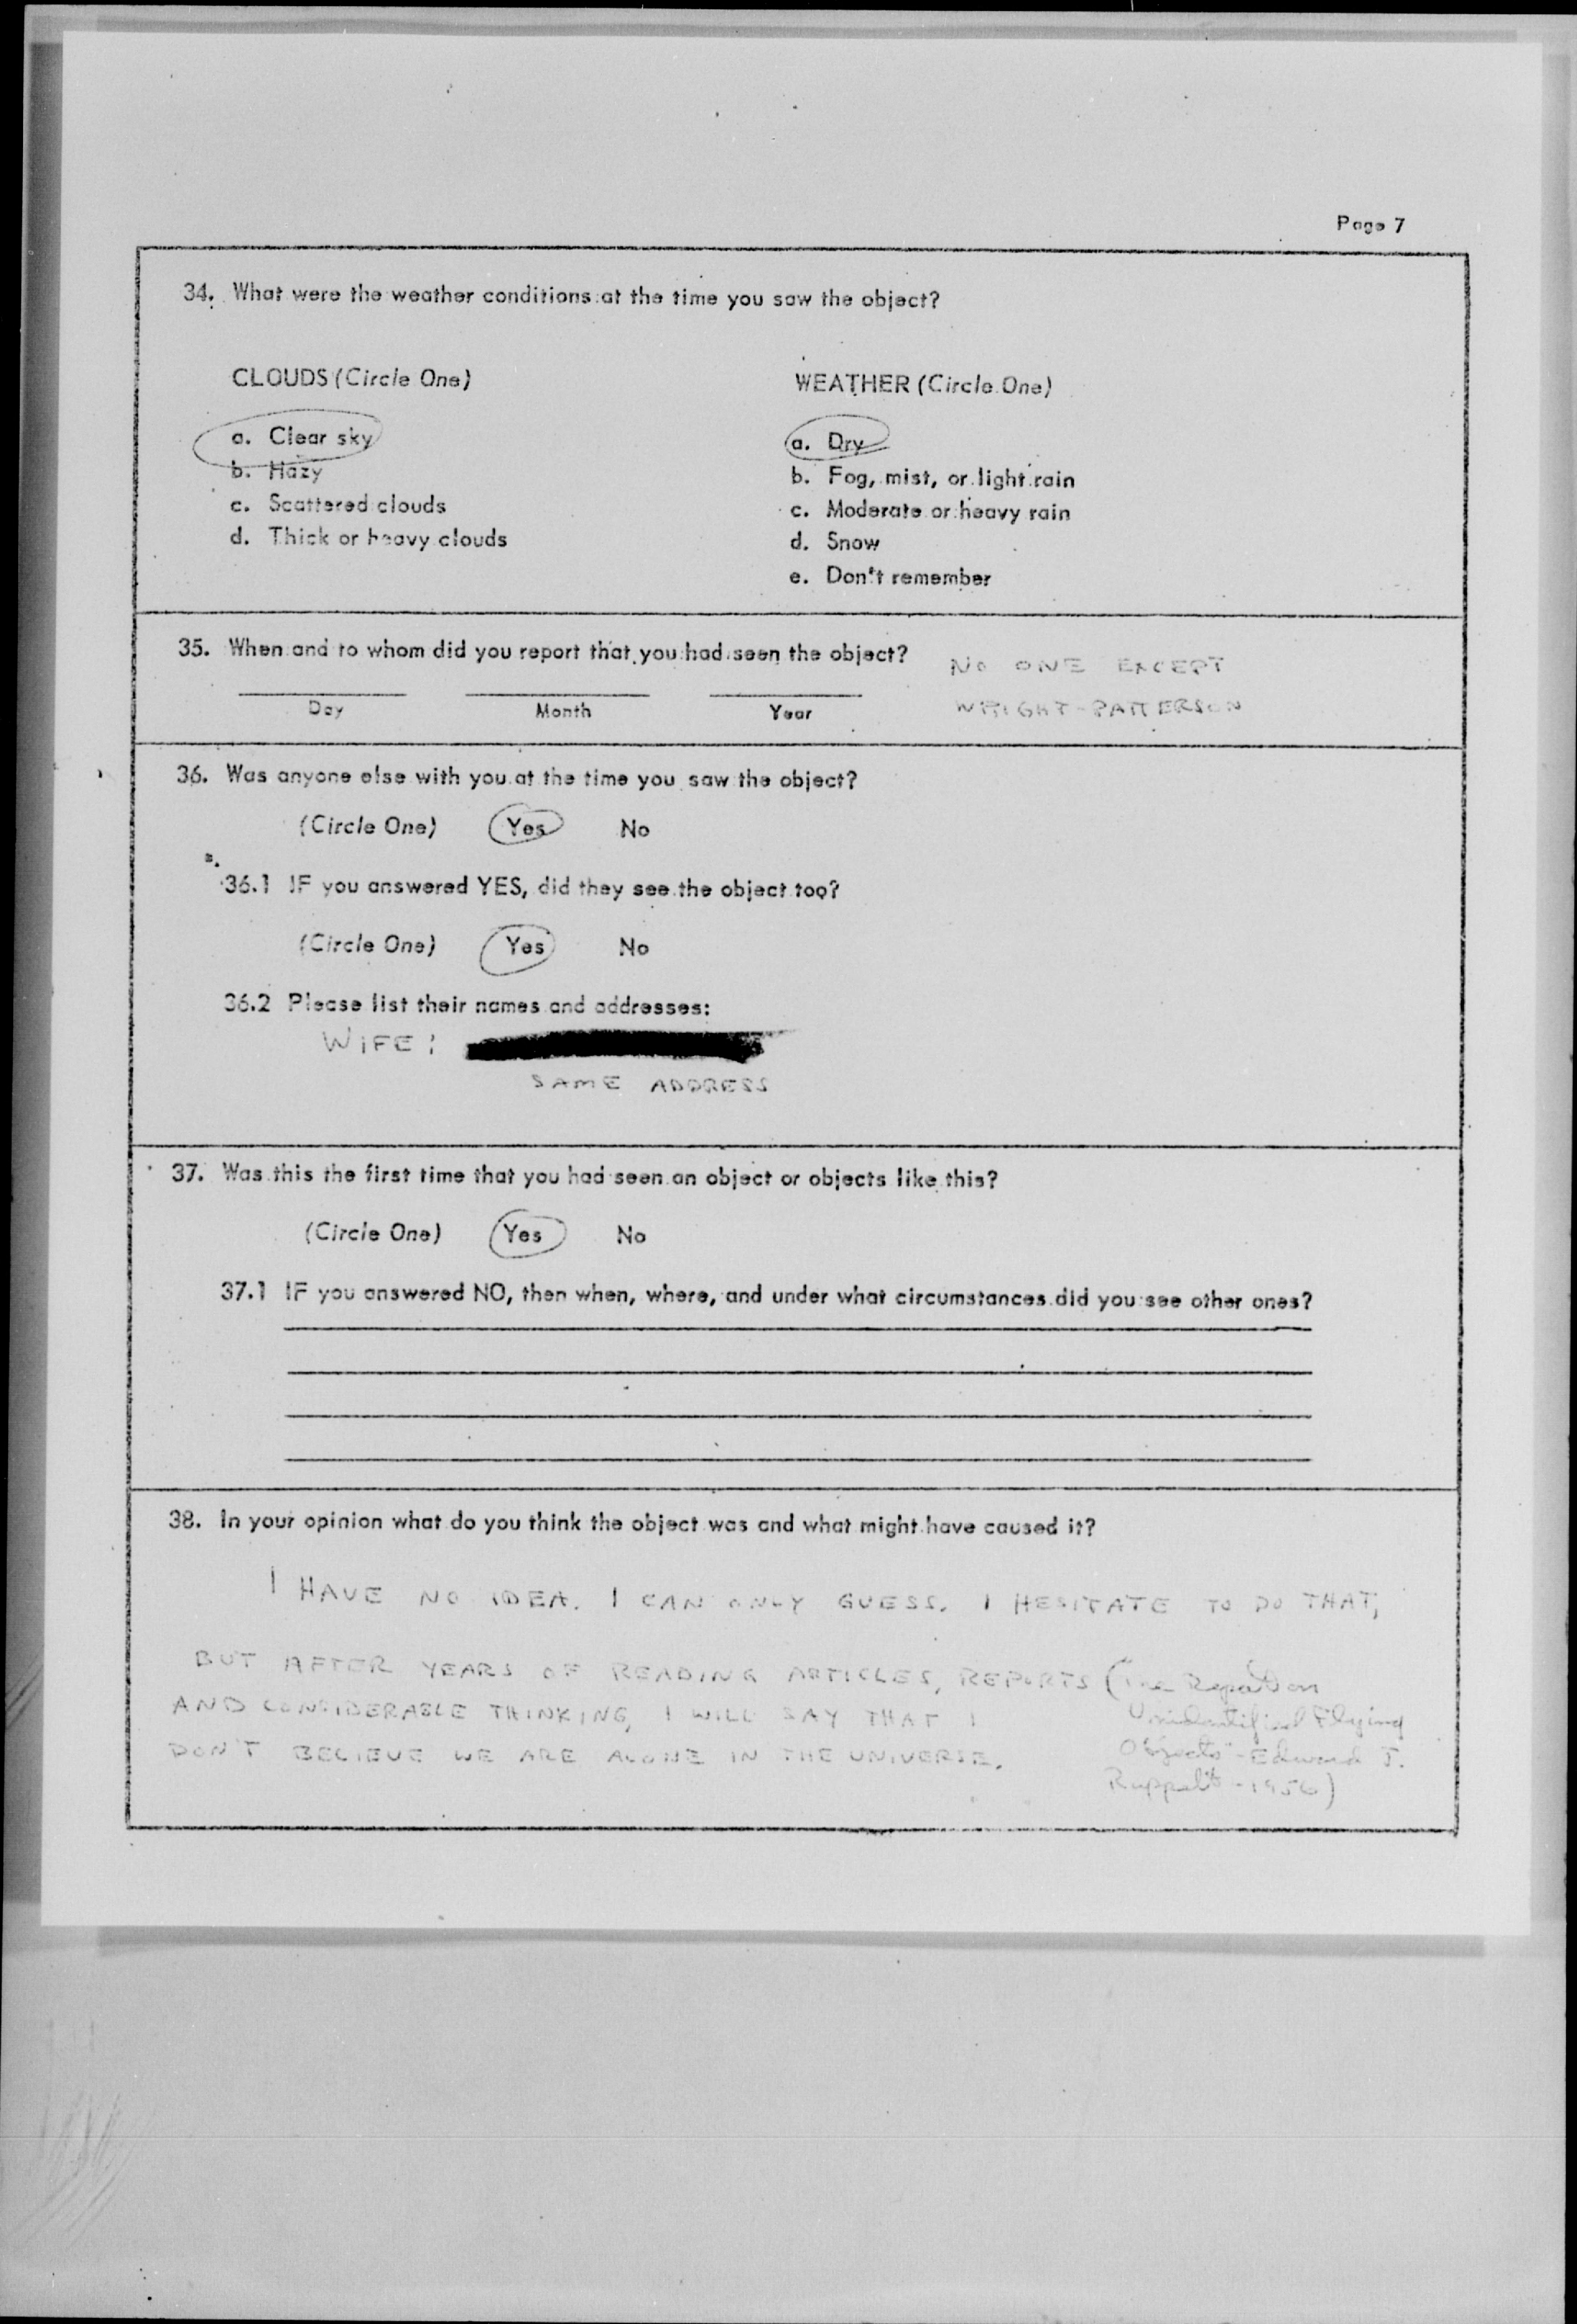 Page 7
34. What were the weather conditions at the time you saw the object?
CLOUDS (Circle One)
a. Clear sky
b. Hazy
c. Scattered clouds
d. Thick or heavy clouds
WEATHER (Circle One)
a. Dry
b. Fog, mist, or light rain
c. Moderate or heavy rain
d. Snow
e. Don't remember
35. When and to whom did you report that you had seen the object?
NO ONE EXCEPT
WRIGHT-PATTERSON
Day Month Year
36. Was anyone else with you at the time you saw the object?
(Circle One) Yes No
36.1 IF you answered YES, did they see the object too?
(Circle One) Yes No
36.2 Please list their names and addresses:
WIFE:
SAME ADDRESS
37. Was this the first time that you had seen an object or objects like this?
(Circle One) Yes No
37.1 IF you answered NO, then when, where, and under what circumstances did you see other ones?
38. In your opinion what do you think the object was and what might have caused it?
I HAVE NO IDEA. I CAN ONLY GUESS. I HESITATE TO DO THAT,
BUT AFTER YEARS OF READING ARTICLES, REPORTS ("The Report on
Unidentified Flying
Objects" - Edward J.
Ruppelt - 1956)
AND CONSIDERABLE THINKING, I WILL SAY THAT I
DON'T BELIEVE WE ARE ALONE IN THE UNIVERSE.